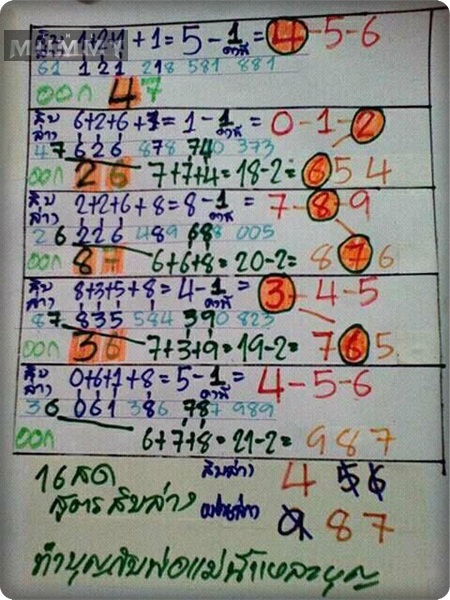 MUMMY
สิบล่าง 1+2+1+1=5-1=4-5-6
คงที่
61 121 218 581 881
ออก 47
สิบล่าง 6+2+6+7=1-1=0-1-2
คงที่
47 626 878 740 373
ออก 26 7+7+4=18-2=654
สิบล่าง 2+2+6+8=8-1=7-8-9
คงที่
26 226 489 688 005
ออก 87 6+6+8=20-2=876
สิบล่าง 8+3+5+8=4-1=3-4-5
คงที่
87 835 584 390 823
ออก 36 7+3+9=19-2=765
สิบล่าง 0+6+1+8=5-1=4-5-6
คงที่
36 061 386 787 989
ออก 6+7+8=21-2=987
16 สด สิบล่าง 4 5 6
สูตรสิบล่าง 9 8 7
ทำบุญกับพ่อแม่